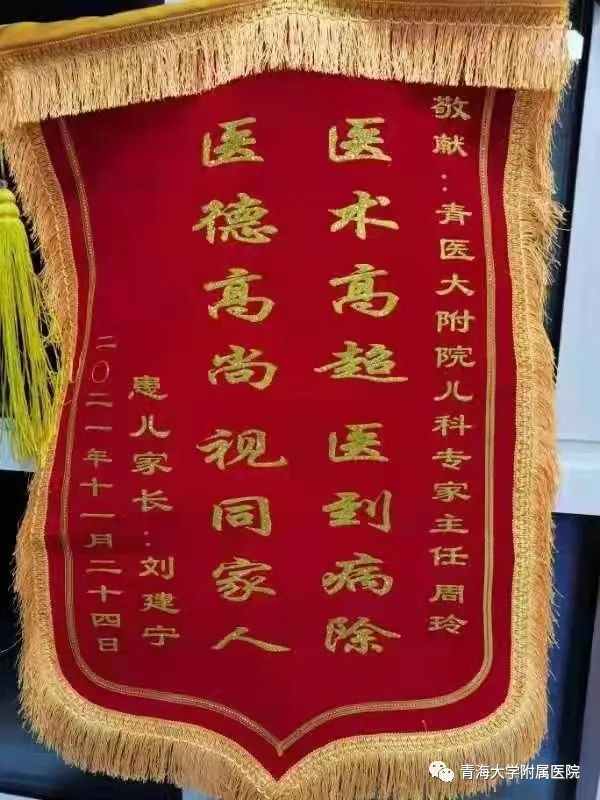 敬献：青医大附院儿科专家主任周玲
医术高超医到病除
医德高尚视同家人
患儿家长：刘建宁
二〇二一年十一月二十四日
青海大学附属医院